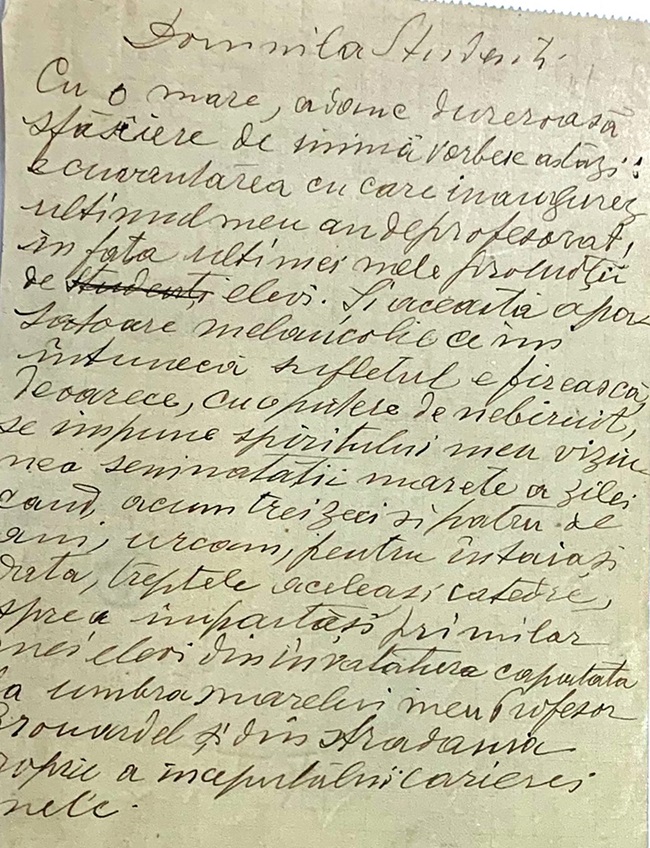 Domnilor Studenți.
Cu o mare, adanc dureroasă
sfâșiere de inimă vorbesc astăzi:
e cuvantarea cu care inaugurez
ultimul meu an de profesorat,
în fața ultimei mele producții
de studenți elevi. Și aceasta apăs-
satoare melancolie ce îmi
întunecă sufletul e firească,
deoarece, cu o putere de nebiruit,
se impune spiritului meu viziu-
nea seninatatii marete a zilei
cand, acum treizeci si patru de
ani, urcam, pentru întaiasi
data, treptele aceleasi catedre,
spre a împartăsi primilor
mei elevi din învatatura capatata
la umbra marelui meu Profesor
Brouardel și din stradania
roprie a începutului carierei
mele.